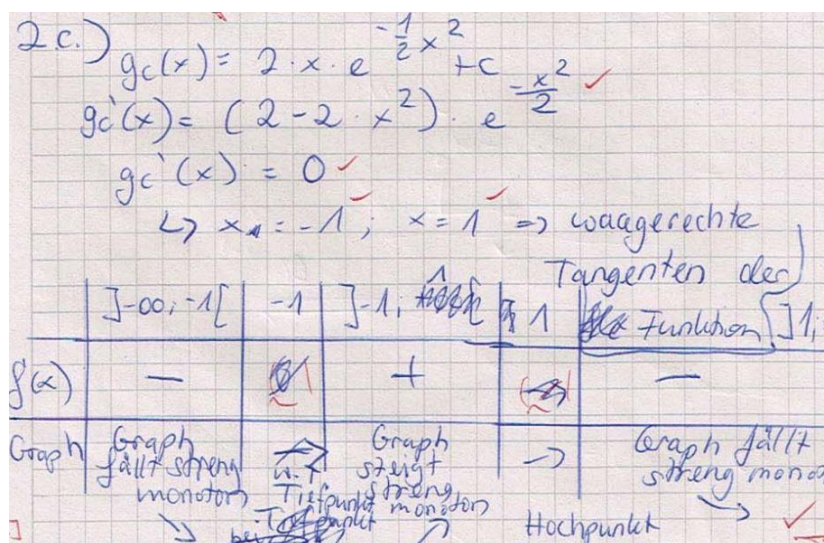 2.c.) gc(x) = 2·x·e^(-1/2 x²) + c
gc'(x) = (2-2·x²)·e^(-x²/2)
gc'(x) = 0
↳ x₁ = -1; x = 1 => waagerechte
Tangenten der
Funktion
]-∞; -1[ | -1 | ]-1; 1[ | 1 | ]1;
f'(x) | - | | + | | -
Graph | Graph fällt streng monoton | Tiefpunkt | Graph steigt streng monoton | → | Graph fällt streng mono
↘ ↗ Hochpunkt ↘